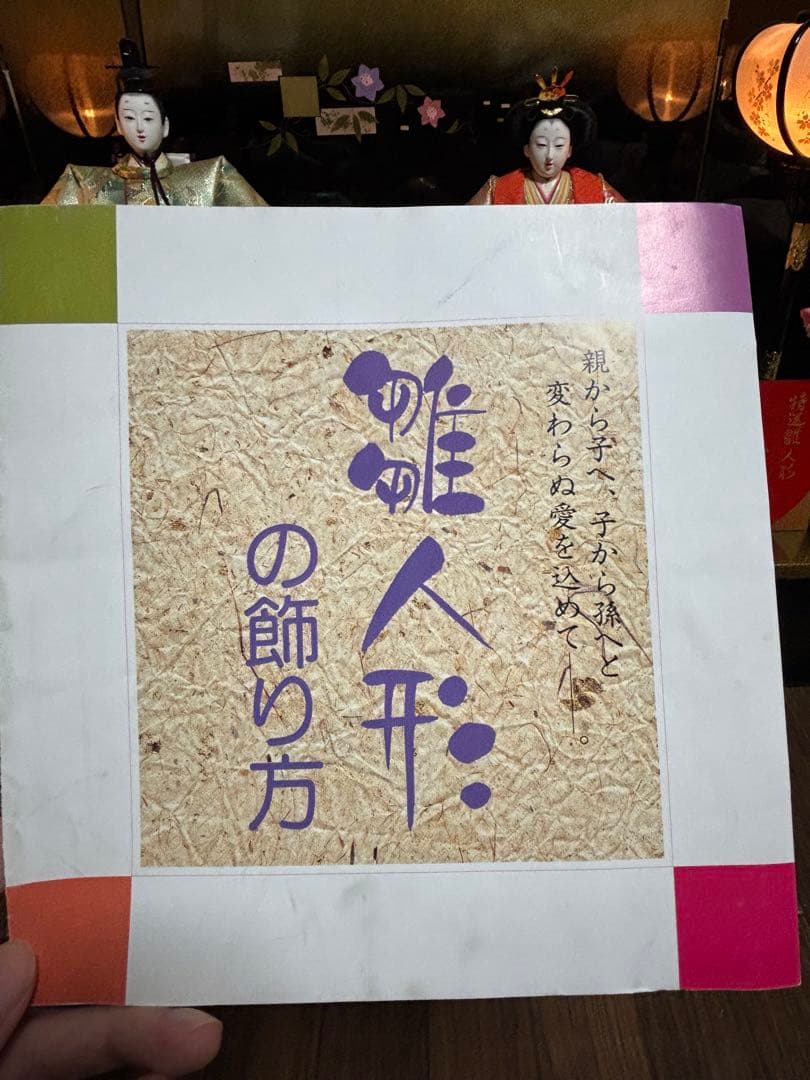 親から子へ、子から孫へと
変わらぬ愛を込めて――。
雛人形
の飾り方
特選雛人形